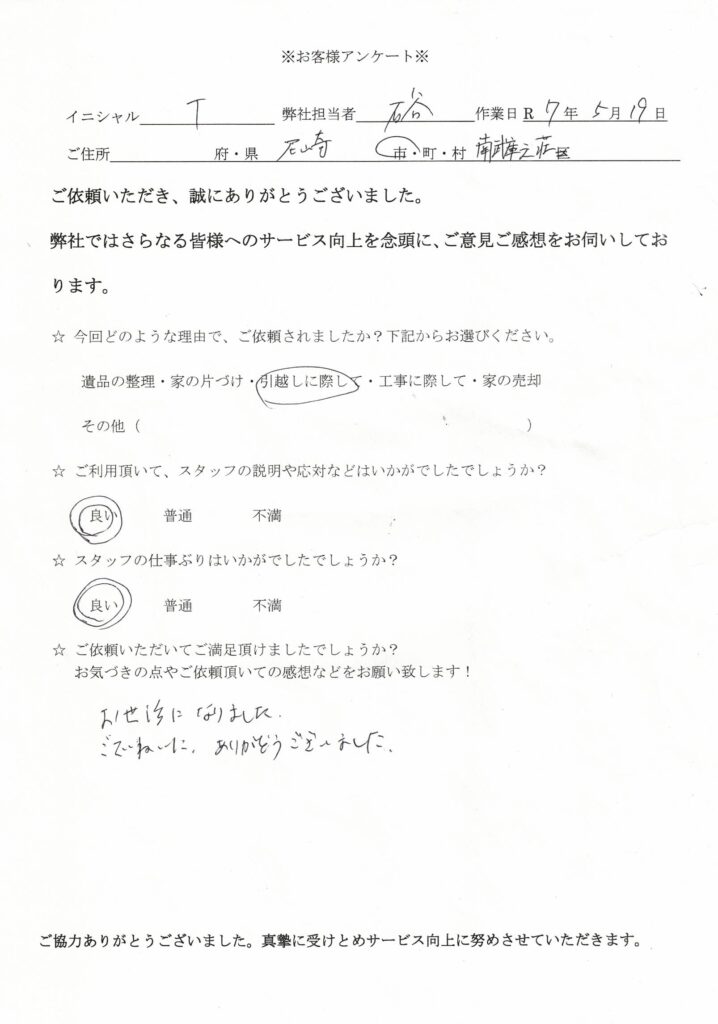 ※お客様アンケート※
イニシャル T 弊社担当者 石谷 作業日 R 7 年 5 月 19 日
ご住所 府・県 尼崎 市・町・村 南武庫之荘 区
ご依頼いただき、誠にありがとうございました。
弊社ではさらなる皆様へのサービス向上を念頭に、ご意見ご感想をお伺いしてお
ります。
☆ 今回どのような理由で、ご依頼されましたか？下記からお選びください。
遺品の整理・家の片づけ・引越しに際して・工事に際して・家の売却
その他（ ）
☆ ご利用頂いて、スタッフの説明や応対などはいかがでしたでしょうか？
良い 普通 不満
☆ スタッフの仕事ぶりはいかがでしたでしょうか？
良い 普通 不満
☆ ご依頼いただいてご満足頂けましたでしょうか？
お気づきの点やご依頼頂いての感想などをお願い致します！
お世話になりました.
ごていねいに、ありがとうございました.
ご協力ありがとうございました。真摯に受けとめサービス向上に努めさせていただきます。